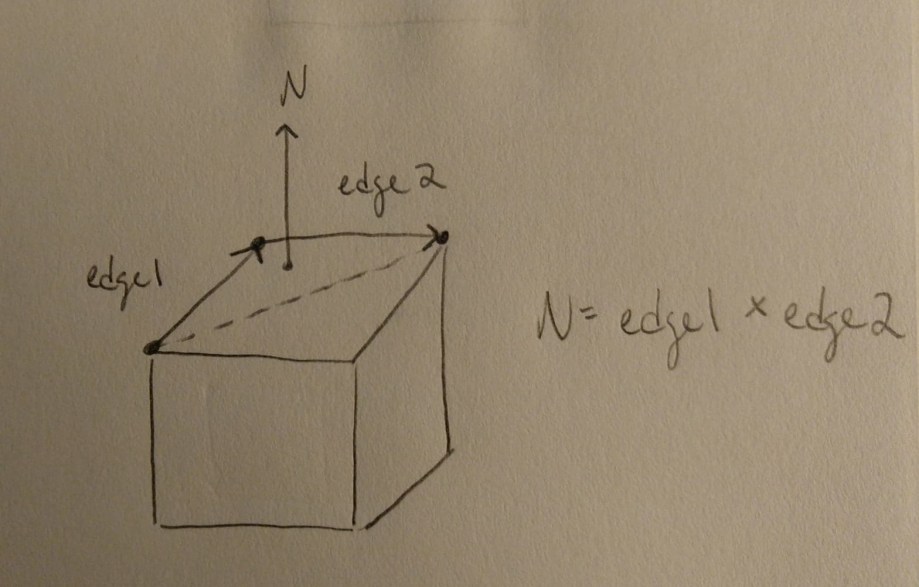 N
edge 2
edge1
N= edge1 × edge2